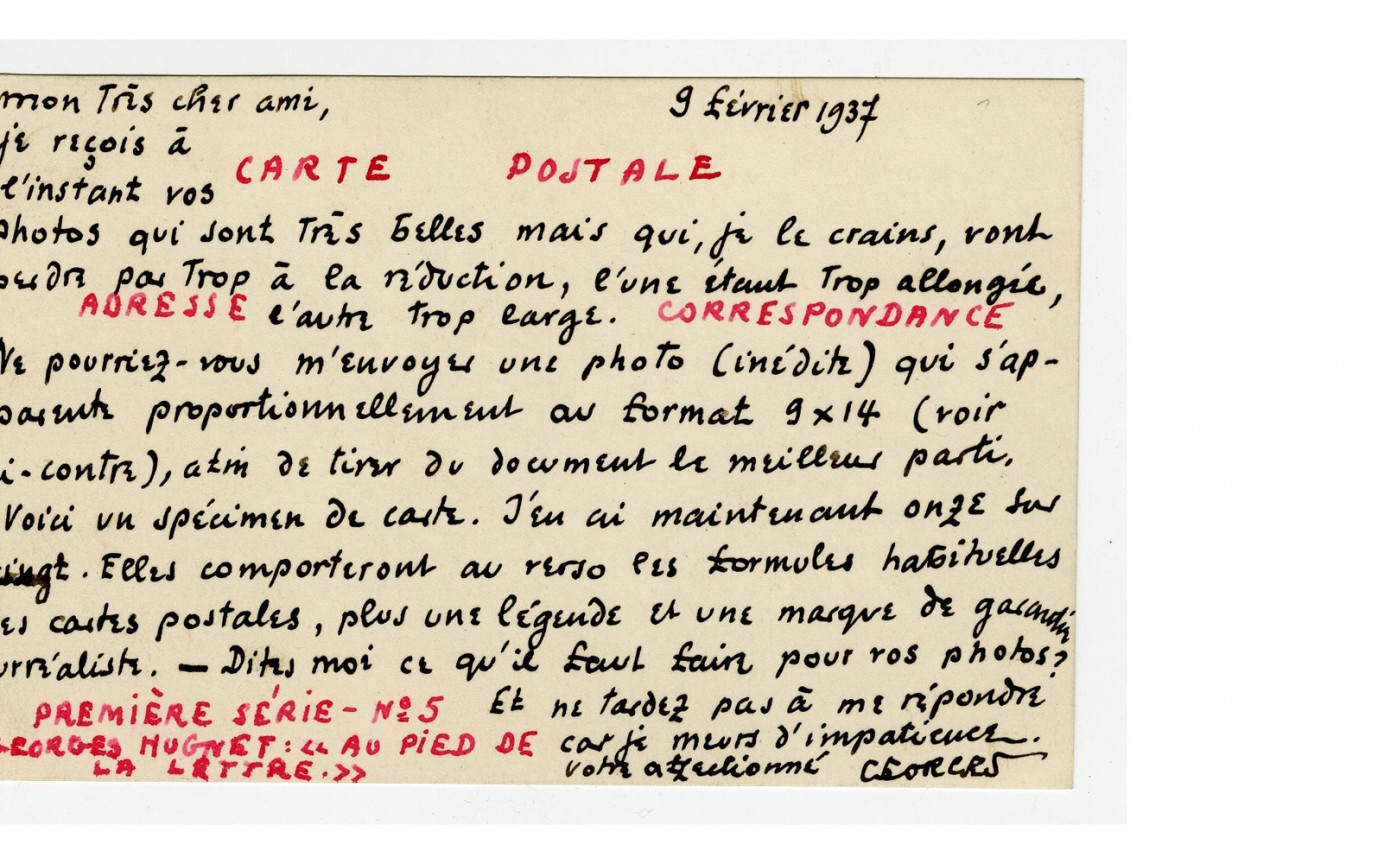 mon Très cher ami, 9 février 1937
je reçois à
l'instant vos
CARTE POSTALE
photos qui sont Très belles mais qui, je le crains, vont
perdre par Trop à la réduction, l'une étant Trop allongée,
ADRESSE l'autre trop large. CORRESPONDANCE
Ne pourriez-vous m'envoyer une photo (inédite) qui s'ap-
parente proportionnellement au format 9 x 14 (voir
i-contre), afin de tirer du document le meilleur parti.
Voici un spécimen de carte. J'en ai maintenant onze sur
vingt. Elles comporteront au verso les formules habituelles
es cartes postales, plus une légende et une marque de garantie
urréaliste. — Dites moi ce qu'il faut faire pour vos photos?
PREMIÈRE SÉRIE - Nº 5 Et ne tardez pas à me répondre
GEORGES HUGNET: << AU PIED DE car je meurs d'impatience.
LA LETTRE. >> votre affectionné GEORGES